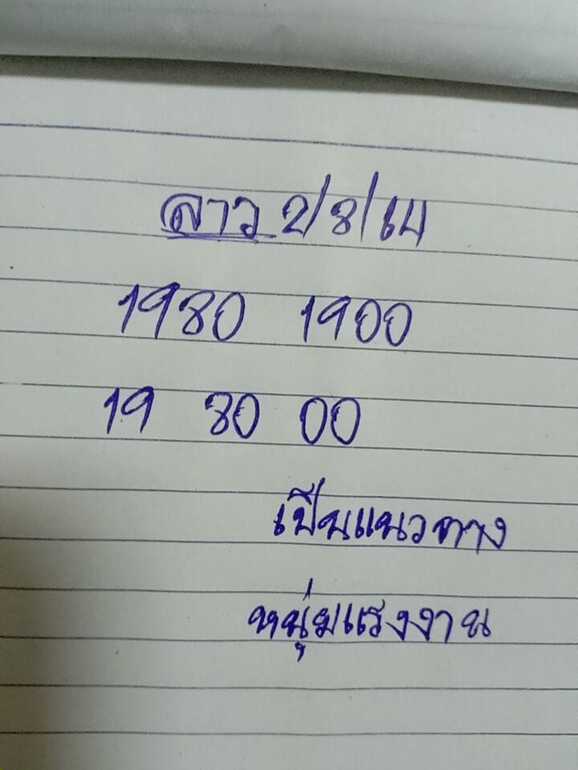 ลาว 2/8/64
1980 1900
19 80 00
เป็นแนวทาง
หนุ่มแรงงาน